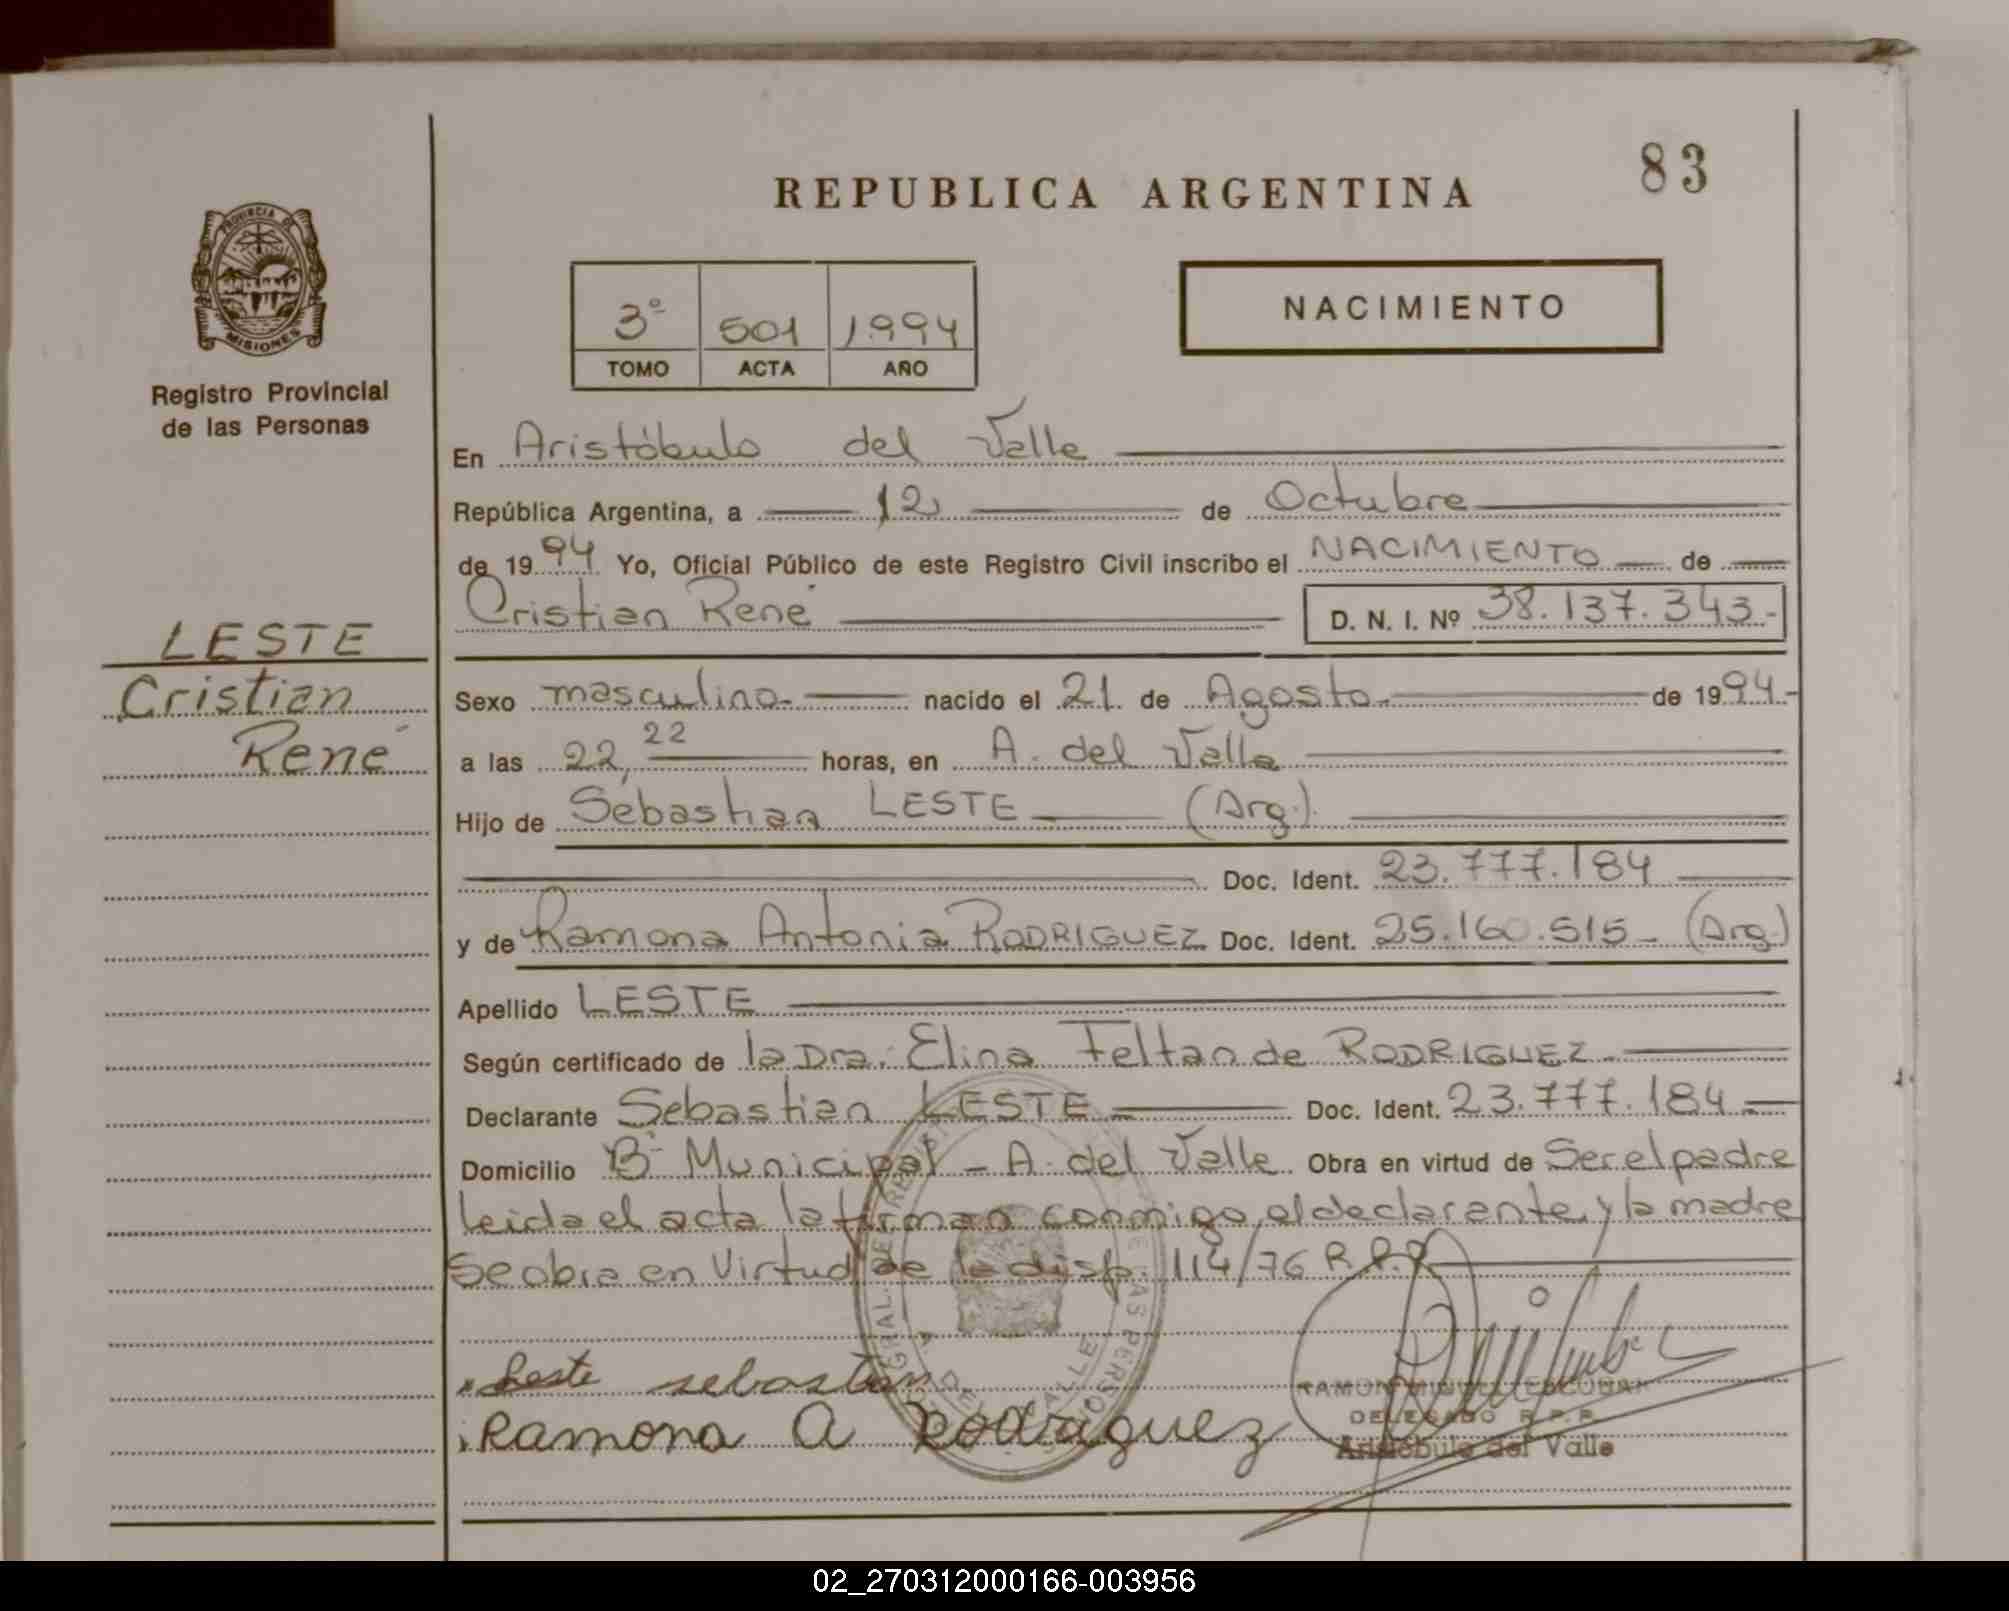 83
REPUBLICA ARGENTINA
PROVINCIA DE
MISIONES
Registro Provincial
de las Personas
3º 501 1.994
TOMO ACTA AÑO
NACIMIENTO
En Aristóbulo del Valle
República Argentina, a 12 de Octubre
de 1994 Yo, Oficial Público de este Registro Civil inscribo el NACIMIENTO de
Cristian René D. N. I. Nº 38.137.343.-
LESTE
Cristian
René
Sexo masculino nacido el 21 de Agosto de 1994.-
a las 22,22 horas, en A. del Valle
Hijo de Sebastian LESTE (Arg.)
Doc. Ident. 23.777.184
y de Ramona Antonia RODRIGUEZ Doc. Ident. 25.160.515 - (Arg.)
Apellido LESTE
Según certificado de la Dra. Elina Feltan de RODRIGUEZ
Declarante Sebastian LESTE Doc. Ident. 23.777.184
Domicilio Bº Municipal - A. del Valle Obra en virtud de Ser el padre
leida el acta la firman conmigo, el declarante y la madre
Se obra en Virtud de la disp. 114/76 R.P.P.
Leste sebastian
Ramona A Rodriguez
RAMON MIGUEL ESCOBAR
DELEGADO R.P.P.
Aristóbulo del Valle
02_270312000166-003956